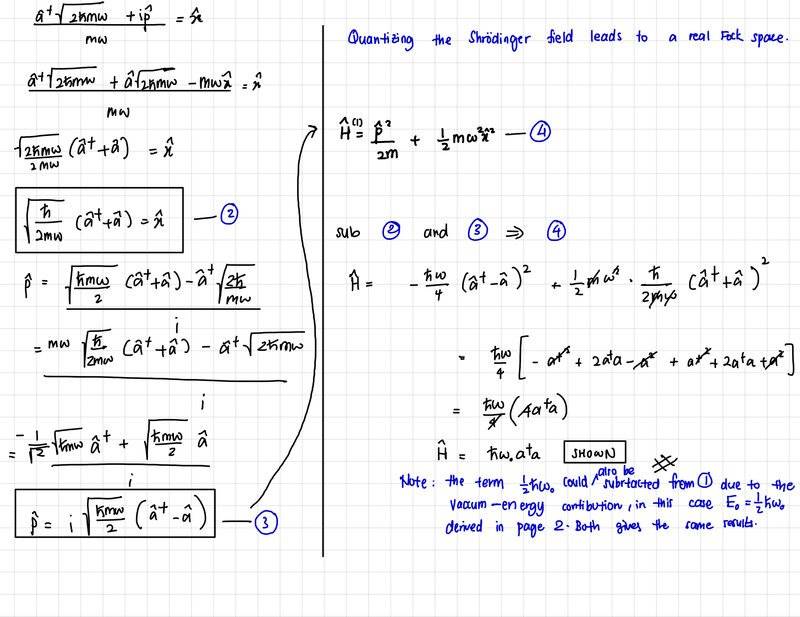 â†√(2ħmω) + ip̂ / mω = x̂
â†√(2ħmω) + â√(2ħmω) − mωx̂ / mω = x̂
√(2ħmω) / 2mω (â†+â) = x̂
√(ħ/2mω) (â†+â) = x̂ — ②
p̂ = √(ħmω/2) (â†+â) − â†√(2ħ/mω) / i
= mω √(ħ/2mω) (â†+â) − â†√(2ħmω) / i
= −1/√2 √(ħmω) â† + √(ħmω/2) â / i
p̂ = i √(ħmω/2) (â†−â) — ③
Quantizing the Shrödinger field leads to a real Fock space.
Ĥ⁽¹⁾ = p̂²/2m + ½mω²x̂² — ④
sub ② and ③ ⇒ ④
Ĥ = −ħω/4 (â†−â)² + ½mω² · ħ/2mω (â†+â)²
= ħω/4 [−a†² + 2a†a − a² + a†² + 2a†a + a²]
= ħω/4 (4a†a)
Ĥ = ħω₀a†a SHOWN
Note: the term ½ħω₀ could also be subrtacted from ① due to the
Vacuum-energy contibution, in this case E₀ = ½ħω₀
derived in page 2. Both gives the same results.